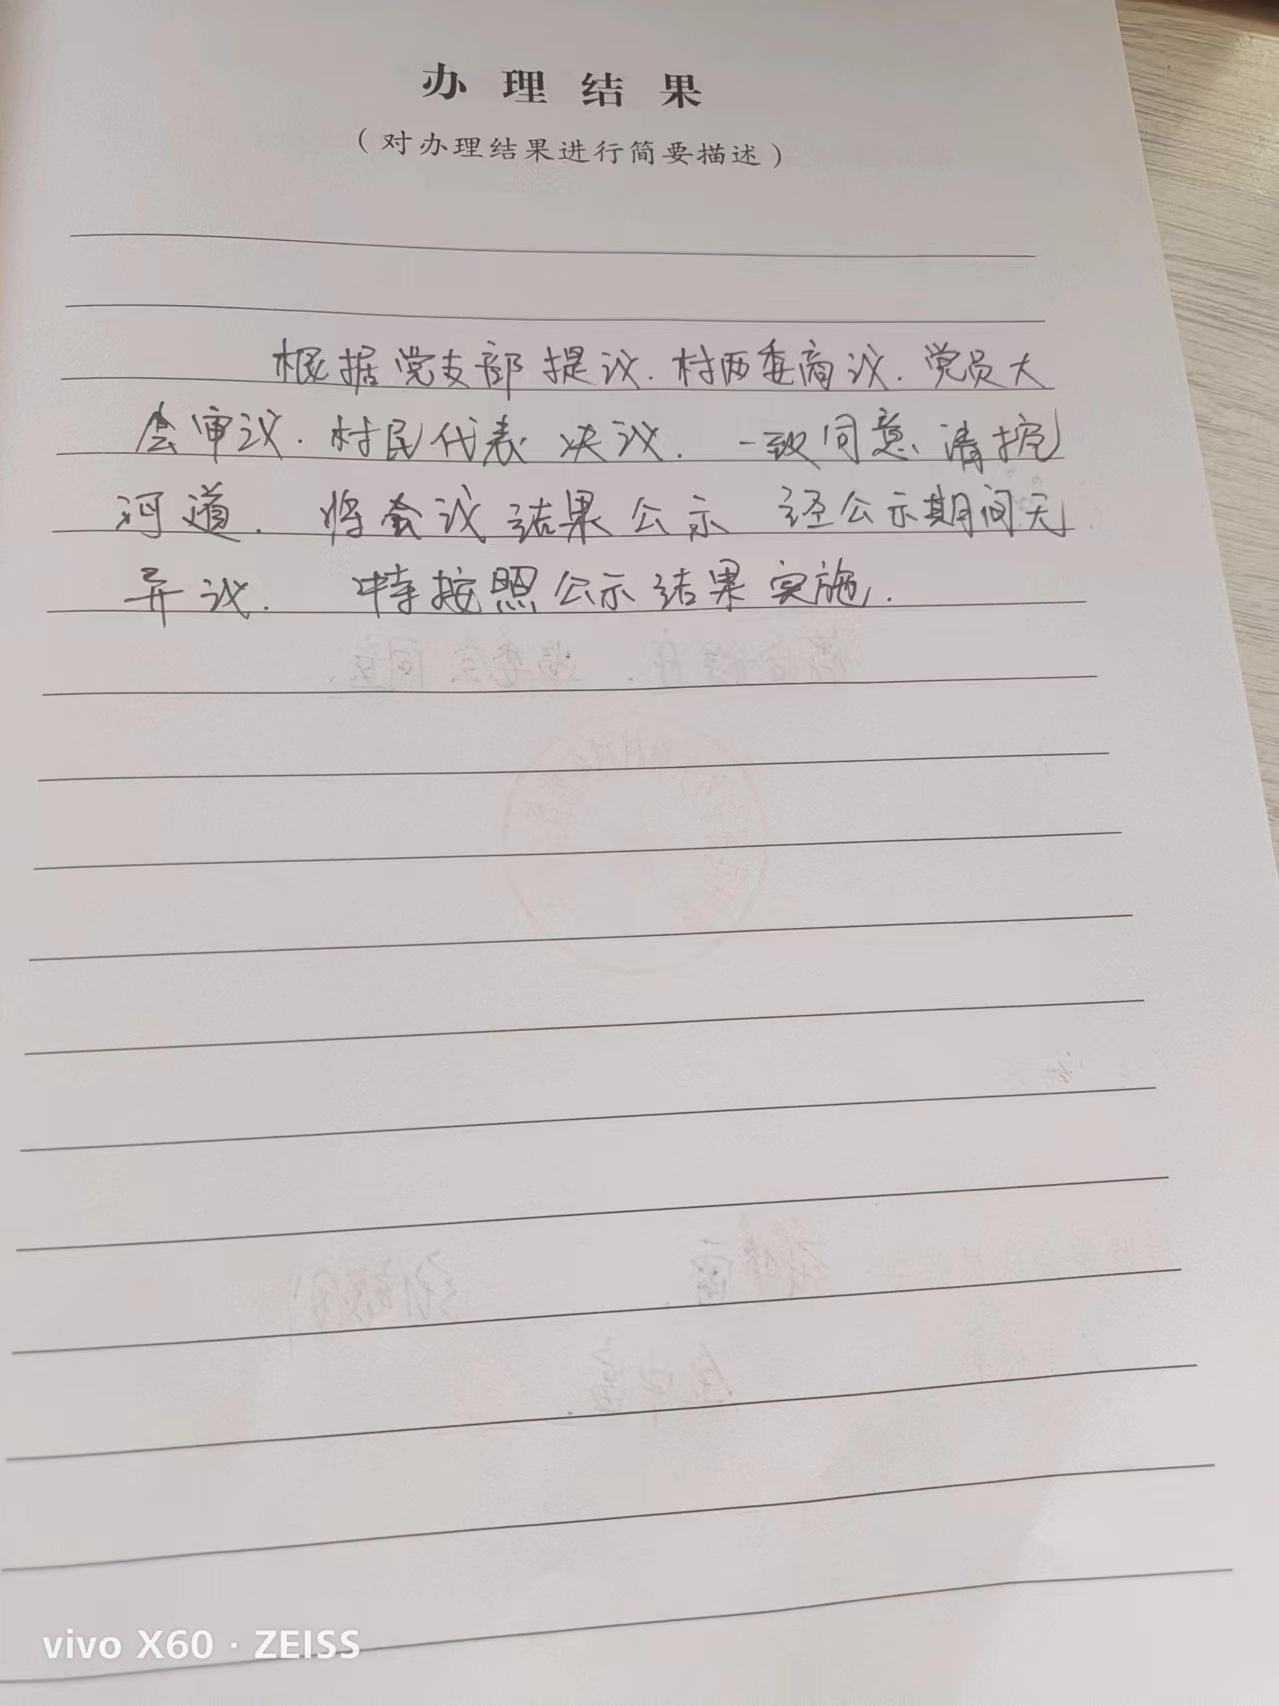 办理结果
（对办理结果进行简要描述）
根据党支部提议.村两委商议.党员大
会审议.村民代表决议.一致同意清挖
河道.将会议结果公示 经公示期间无
异议. 特按照公示结果实施.
vivo X60 · ZEISS